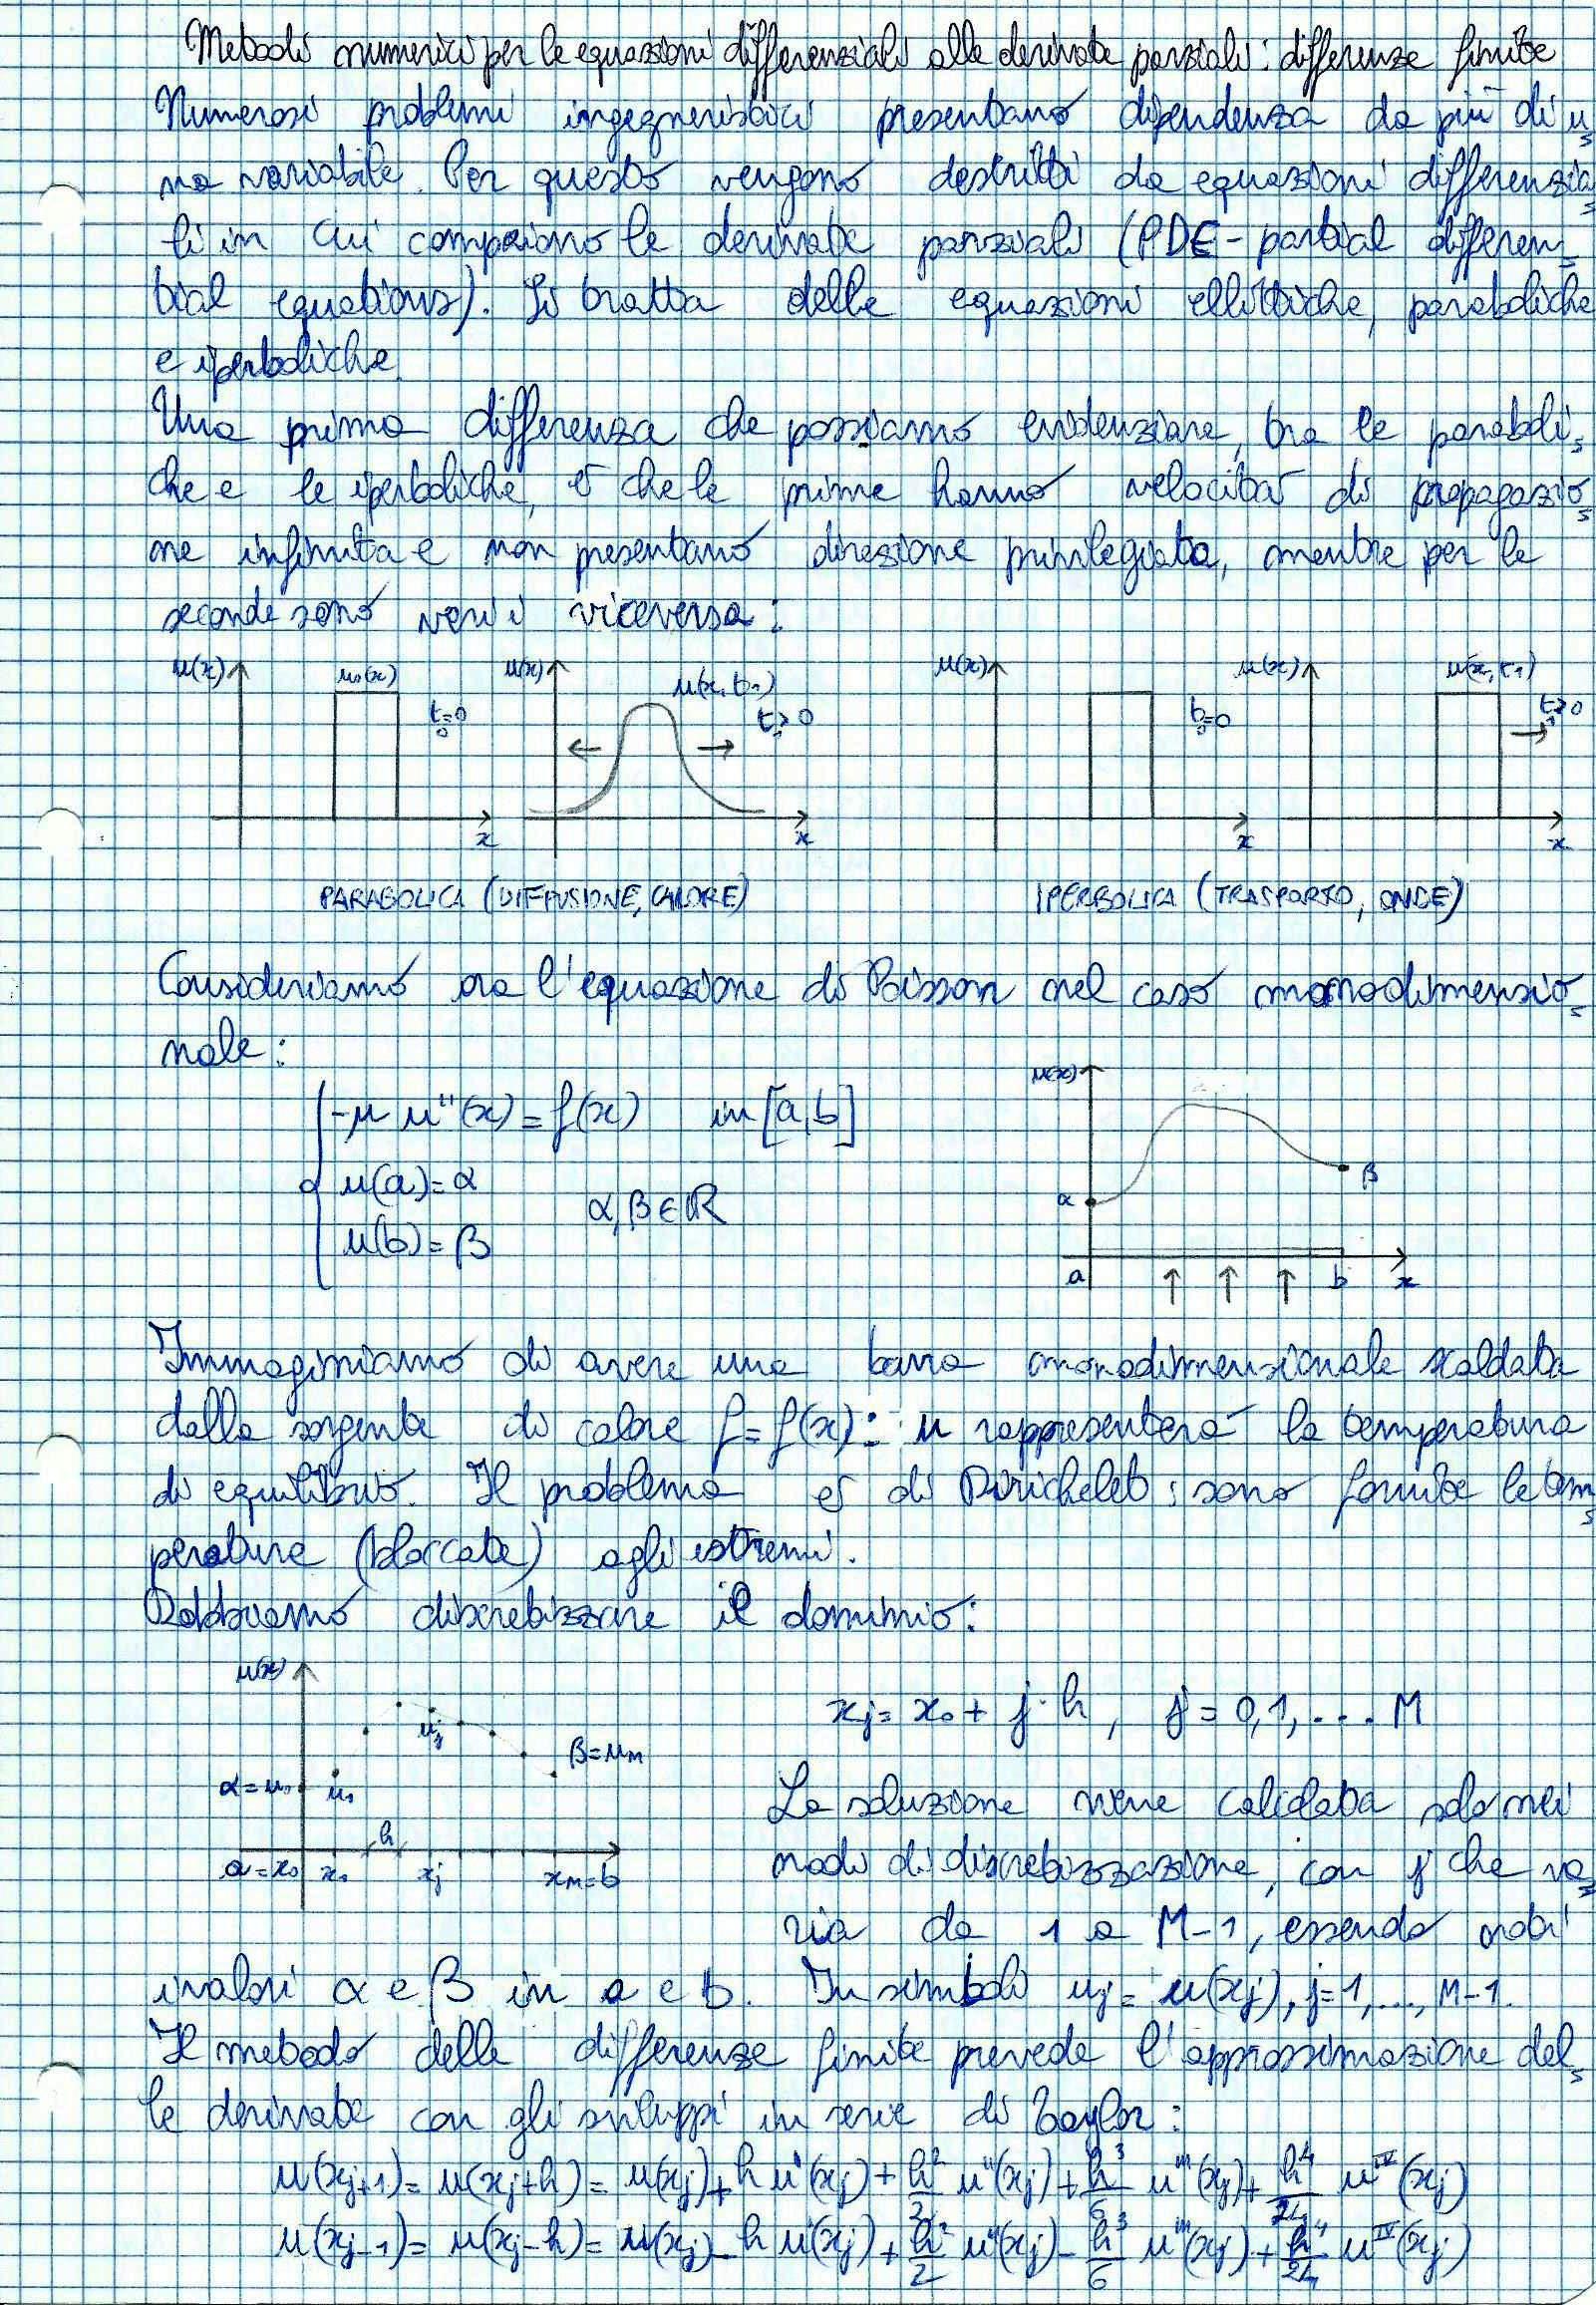 Metodi numerici per le equazioni differenziali alle derivate parziali: differenze finite
Numerosi problemi ingegneristici presentano dipendenza da più di u
na variabile. Per questo vengono descritti da equazioni differenzia
li in cui compaiono le derivate parziali (PDE - partial differen
tial equations). Si tratta delle equazioni ellittiche, paraboliche
e iperboliche.
Una prima differenza che possiamo evidenziare, tra le paraboli
che e le iperboliche, è che le prime hanno velocità di propagazio
ne infinita e non presentano direzione privilegiata, mentre per le
seconde sono veri i viceversa:
u(x) u₀(x) t₀=0 x
u(x) u(x,t₁) t₁>0 x
u(x) t₀=0 x
u(x) u(x,t₁) t₁>0 x
PARABOLICA (DIFFUSIONE, CALORE) IPERBOLICA (TRASPORTO, ONDE)
Consideriamo ora l'equazione di Poisson nel caso monodimensio
nale:
-μ u''(x) = f(x) in [a,b]
u(a) = α
α, β ∈ ℝ
u(b) = β
u(x) α β a b x
Immaginiamo di avere una barra monodimensionale scaldata
dalla sorgente di calore f = f(x): u rappresenterà la temperatura
di equilibrio. Il problema è di Dirichelet: sono fornite le tem
perature (bloccate) agli estremi.
Dobbiamo discretizzare il dominio:
u(x) uⱼ β=u_M α=u₀ u₁ h
a=x₀ x₁ xⱼ x_M=b
xⱼ = x₀ + j·h, j = 0,1,... M
La soluzione viene calcolata solo nei
nodi di discretizzazione, con j che va
ria da 1 a M-1, essendo noti
i valori α e β in a e b. In simboli uⱼ = u(xⱼ), j=1,..., M-1.
Il metodo delle differenze finite prevede l'approssimazione del
le derivate con gli sviluppi in serie di Taylor:
u(xⱼ₊₁) = u(xⱼ+h) = u(xⱼ) + h u'(xⱼ) + h²/2 u''(xⱼ) + h³/6 u'''(xⱼ) + h⁴/24 u^IV(xⱼ)
u(xⱼ₋₁) = u(xⱼ-h) = u(xⱼ) - h u'(xⱼ) + h²/2 u''(xⱼ) - h³/6 u'''(xⱼ) + h⁴/24 u^IV(xⱼ)